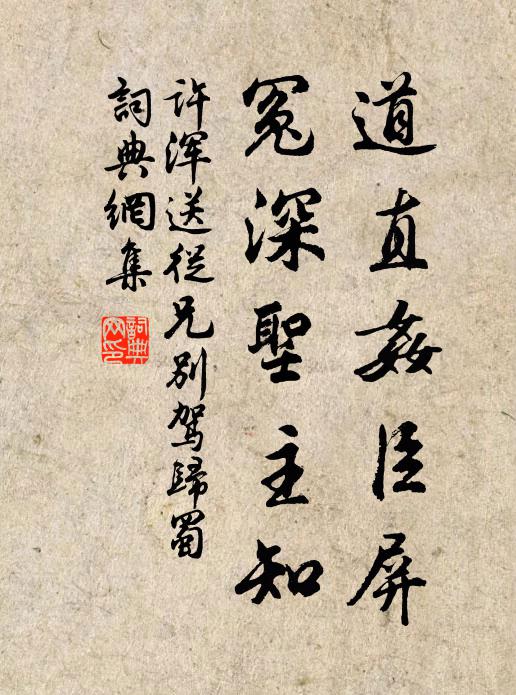 道直姦臣屏
冤深聖主知
许浑送從兄別驾歸蜀
詞典網集
詞典
网印